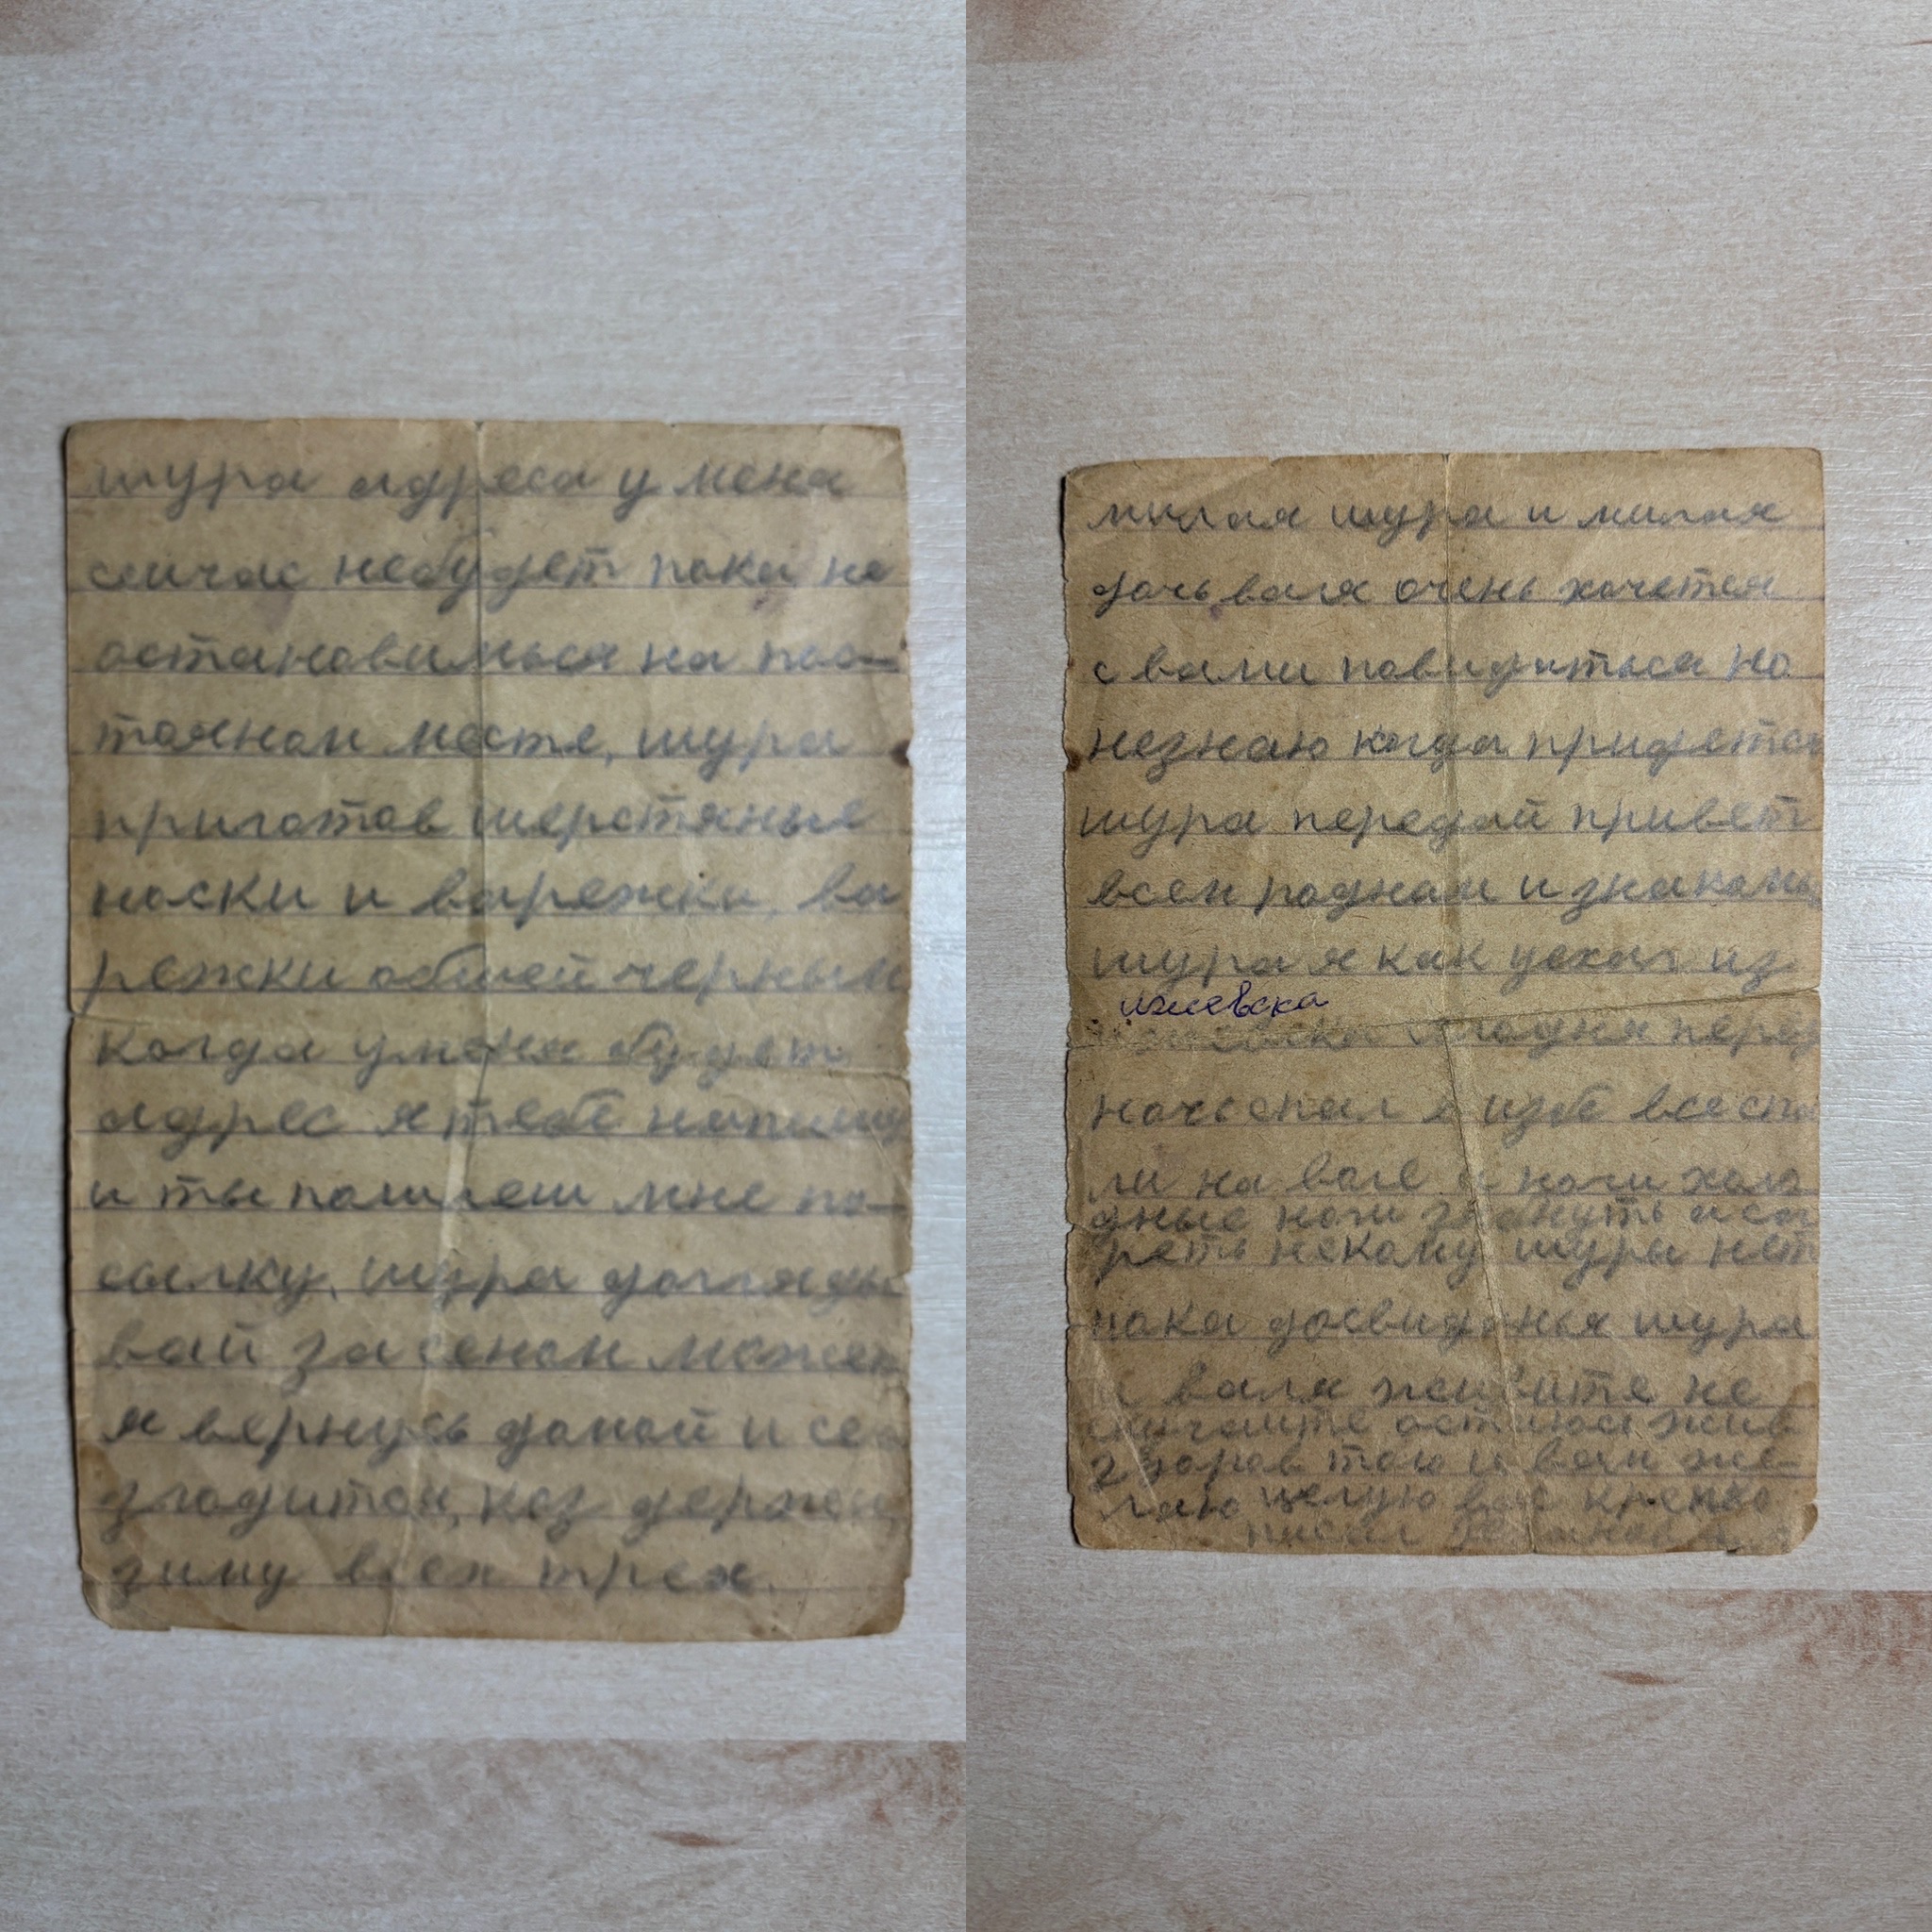 шура адреса у меня
сичас небудет пока не
остановимься на пос-
тояном месте, шура
приготов шерстяные
носки и варежки, ва
режки обшей черным
когда уменя будет
адрес я тебе напишу
и ты пошлеш мне по-
сылку. шура догляды
вай за сеном может
я вернусь домой и се
згодится, коз держи
зиму всех трех.
милая шура и милая
дочь валя очень хочется
с вами повидиться но
незнаю когда придется
шура передай привет
всем родным и знакомы
шура я как уехал из
ижевска
перед
ночь спал в избе все сп
ли на воле и ноги холо
дные ноги
реть некому шуры нет
пока досвиданья шура
и валя живите не
скучайте остаюся жив
здоров того и вам же-
лаю целую вас крепко
писал